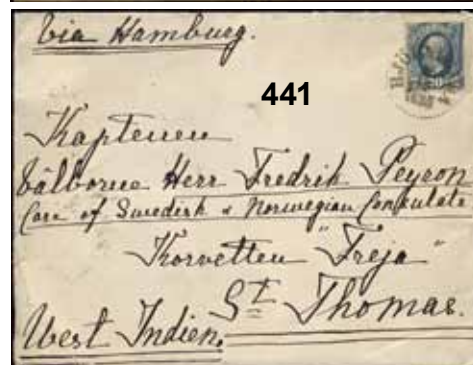 Via Hamburg.
441
Kaptenen
Välborne Herr Fredrik Peyron
Care of Swedish & Norwegian Consulate
Korvetten "Freja"
St Thomas.
West Indien.